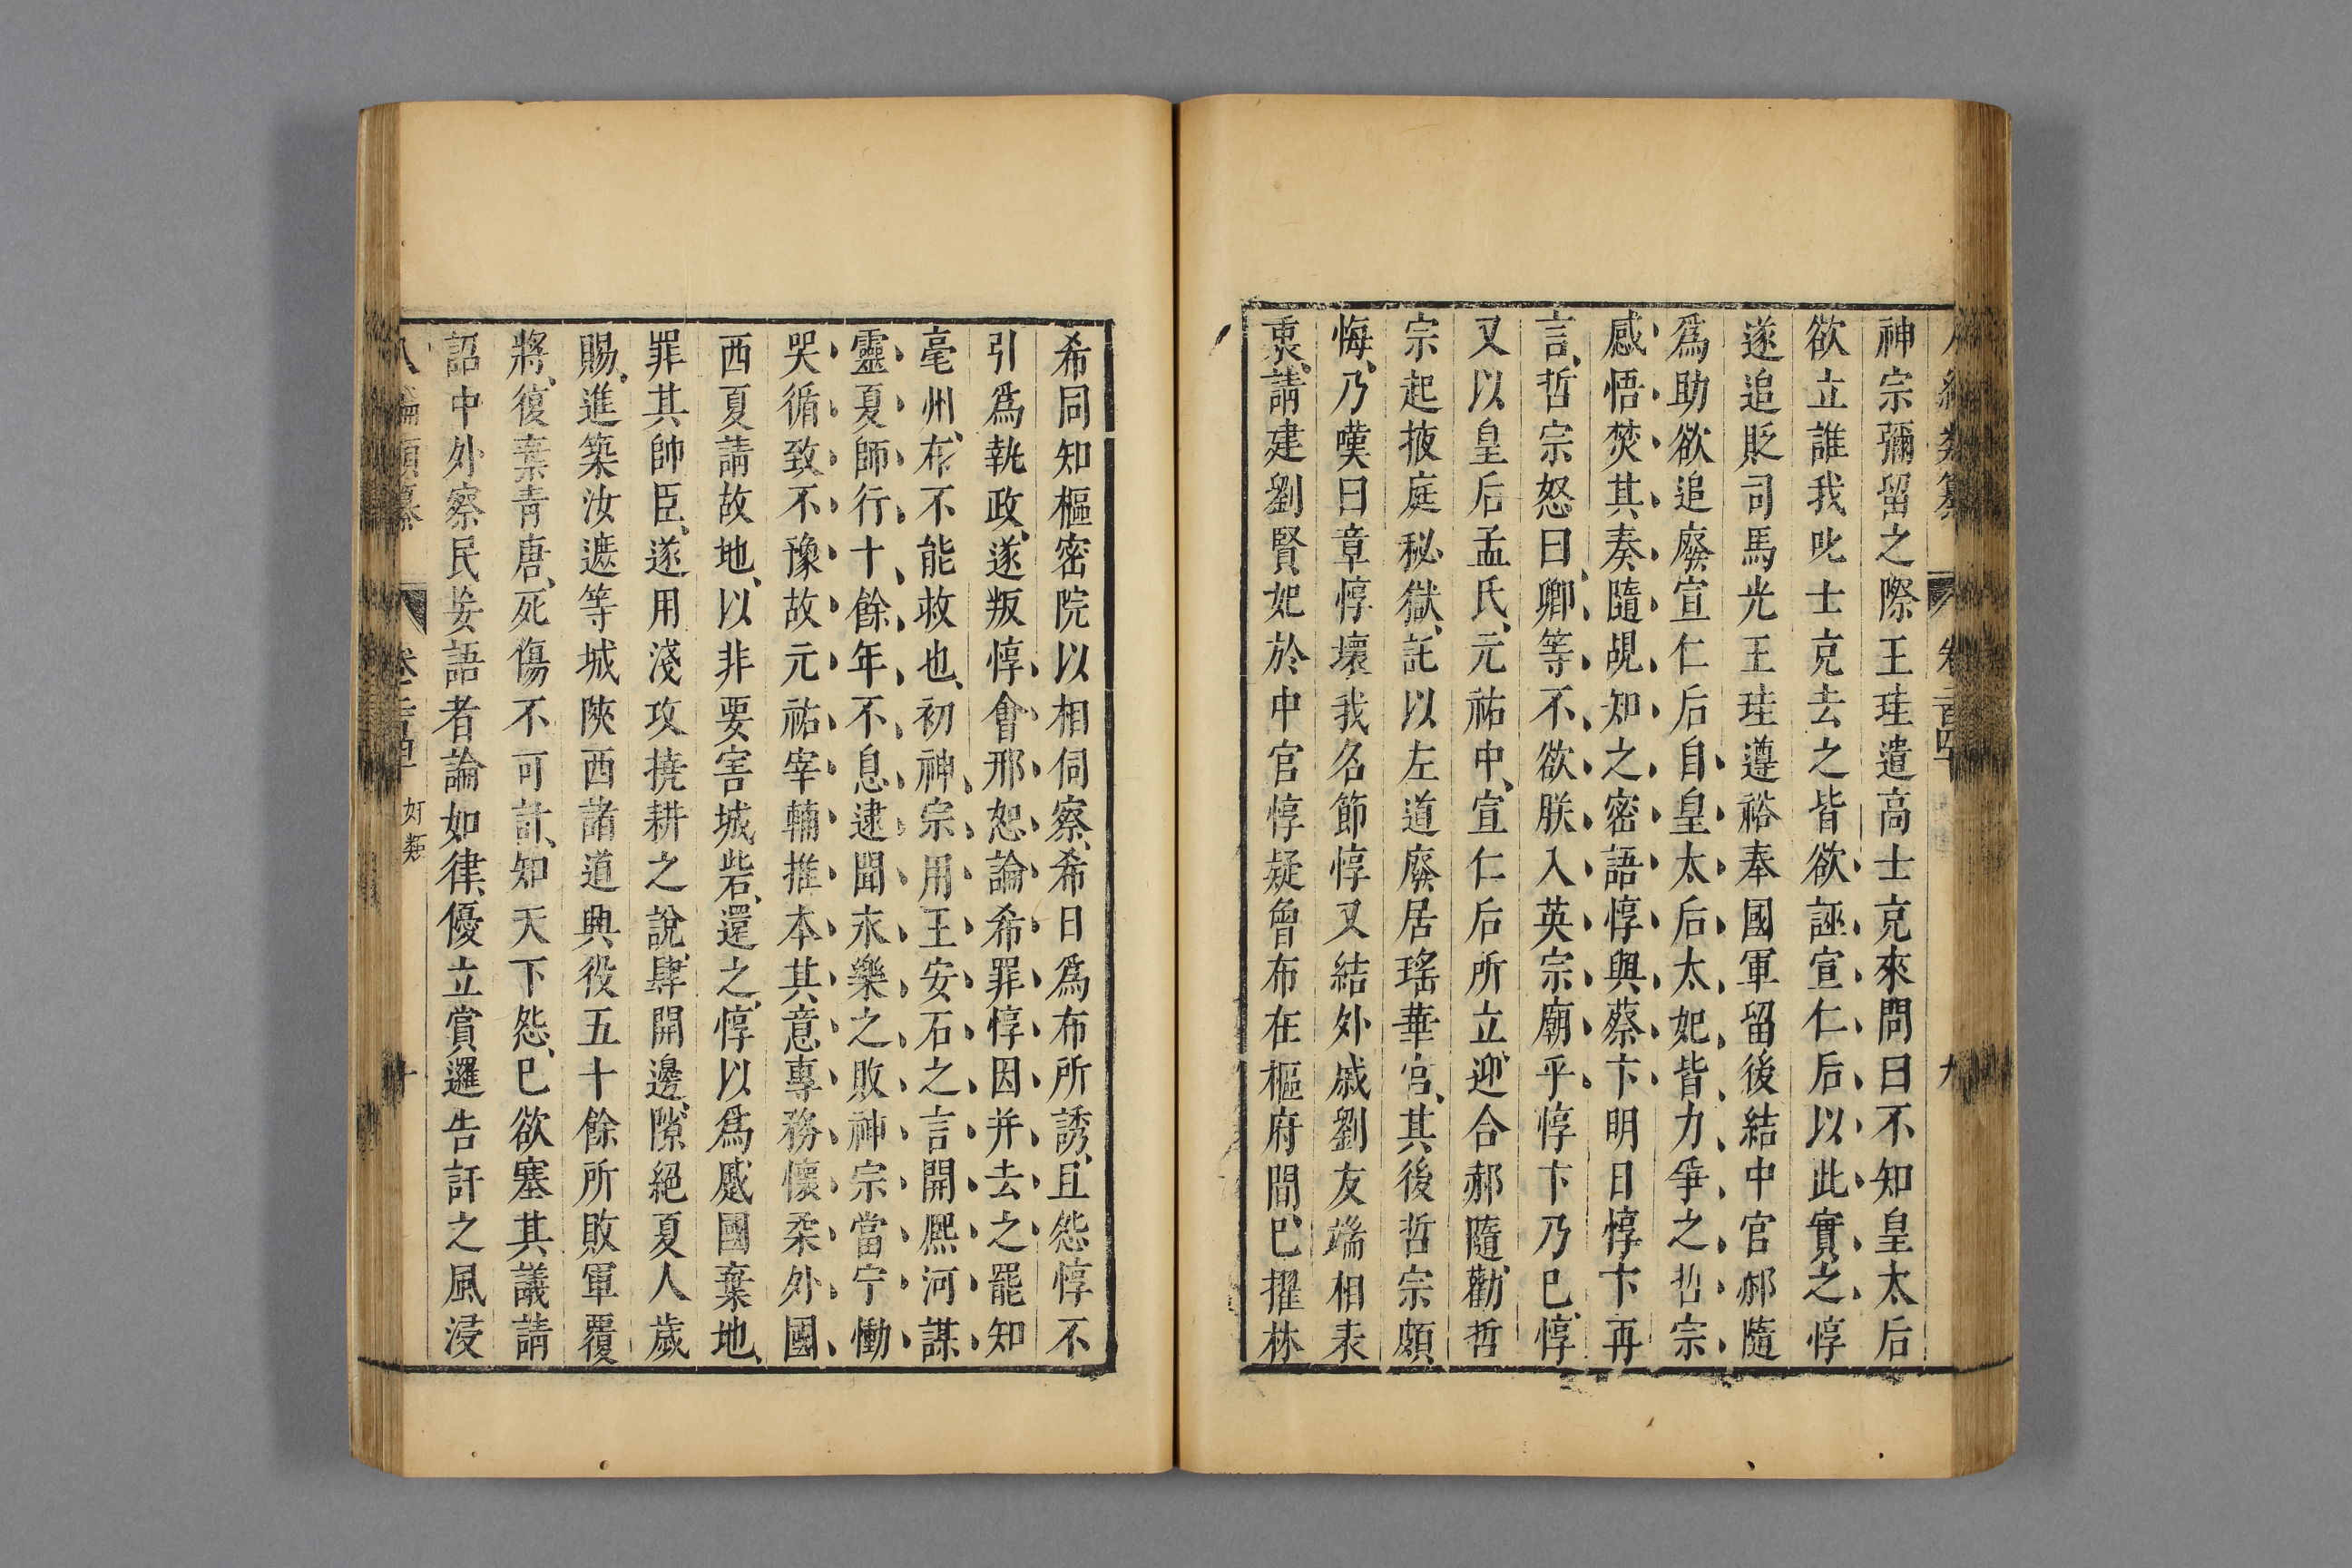 神宗彌留之際王珪遣高士充來問曰不知皇太后
欲立誰我叱士充去之皆欲誣宣仁后以此實之惇
遂追貶司馬光王珪遵裕奉國軍留後結中官郝隨
爲助欲追廢宣仁后自皇太后太妃皆力爭之哲宗
感悟焚其奏隨覘知之密語惇與蔡卞明日惇卞再
言哲宗怒曰卿等不欲朕入英宗廟乎惇卞乃已惇
又以皇后孟氏元祐中宣仁后所立迎合郝隨勸哲
宗起掖庭秘獄託以左道廢居瑤華宮其後哲宗頗
悔乃嘆曰章惇壞我名節惇又結外戚劉友端相表
裏請建劉賢妃於中宮惇疑曾布在樞府間已擢林
希同知樞密院以相伺察希日爲布所誘且怨惇不
引爲執政遂叛惇會邢恕論希罪惇因并去之罷知
亳州布不能救也初神宗用王安石之言開熈河謀
靈夏師行十餘年不息逮聞永樂之敗神宗當宁慟
哭循致不豫故元祐宰輔推本其意專務懷柔外國
西夏請故地以非要害城砦還之惇以爲蹙國棄地
罪其帥臣遂用淺攻撓耕之說肆開邊隙絕夏人歲
賜進築汝遮等城陝西諸道興役五十餘所敗軍覆
將復棄青唐死傷不可計知天下怨已欲塞其議請
詔中外察民妄語者論如律優立賞邏告訐之風浸
奸類
十